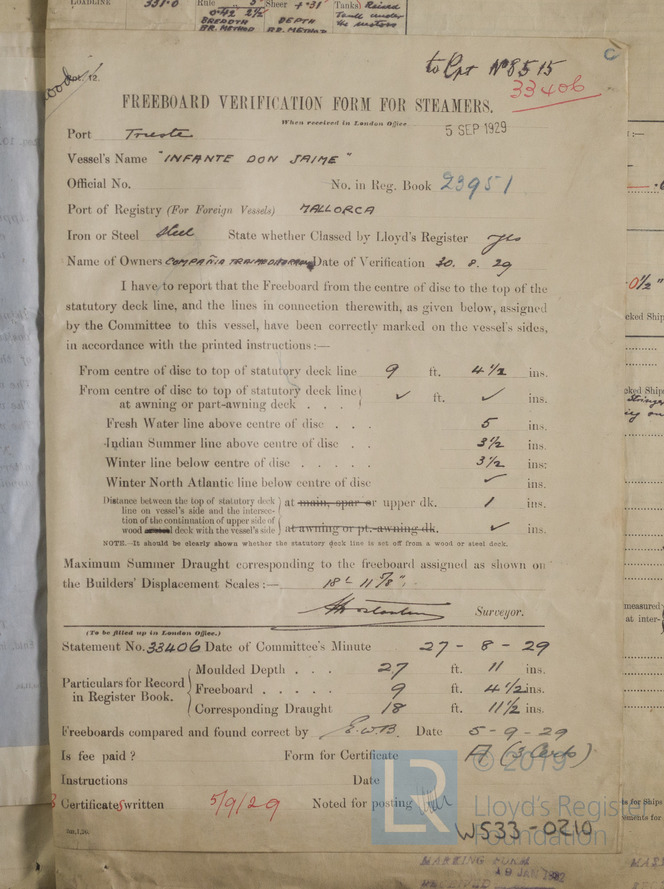 LOADLINE 331.0 Rule Sheer + 31 Tanks) Raised
0.42 2½ Tank under
BREADTH DEPTH
BR. METHOD BR. METHOD
to Rpt No 8515
33406
FREEBOARD VERIFICATION FORM FOR STEAMERS.
When received in London Office 5 SEP 1929
Port Trieste
Vessel's Name "INFANTE DON JAIME"
Official No. No. in Reg. Book 23951
Port of Registry (For Foreign Vessels) MALLORCA
Iron or Steel Steel State whether Classed by Lloyd's Register Yes
Name of Owners COMPAÑIA Date of Verification 30. 8. 29
I have to report that the Freeboard from the centre of disc to the top of the
statutory deck line, and the lines in connection therewith, as given below, assigned
by the Committee to this vessel, have been correctly marked on the vessel's sides,
in accordance with the printed instructions:—
From centre of disc to top of statutory deck line 9 ft. 4½ ins.
From centre of disc to top of statutory deck line
at awning or part-awning deck . . . ✓ ft. ✓ ins.
Fresh Water line above centre of disc . . . 5 ins.
Indian Summer line above centre of disc . . 3½ ins.
Winter line below centre of disc . . . . . 3½ ins.
Winter North Atlantic line below centre of disc ✓ ins.
Distance between the top of statutory deck
line on vessel's side and the intersec-
tion of the continuation of upper side of
wood deck with the vessel's side
at main, spar or upper dk. 1 ins.
at awning or pt.-awning dk. ✓ ins.
NOTE.—It should be clearly shown whether the statutory deck line is set off from a wood or steel deck.
Maximum Summer Draught corresponding to the freeboard assigned as shown on
the Builders' Displacement Scales:— 18' 11⅝"
Surveyor.
(To be filled up in London Office.)
Statement No. 33406 Date of Committee's Minute 27 - 8 - 29
Particulars for Record
in Register Book.
Moulded Depth . . . 27 ft. 11 ins.
Freeboard . . . . . 9 ft. 4½ ins.
Corresponding Draught 18 ft. 11½ ins.
Freeboards compared and found correct by E.W.B. Date 5-9-29
Is fee paid ? Form for Certificate A (3 Certs)
Instructions Date
3 Certificates written 5/9/29 Noted for posting
© 2019
LR Lloyd's Register
Foundation
W533-0210
MARKING FORM